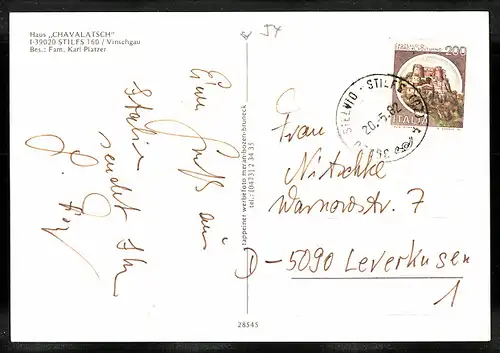 Haus „CHAVALATSCH"
I-39020 STILFS 160 / Vinschgau
Bes.: Fam. Karl Platzer
Einen Gruß aus
Italien
sendet Ihr
tappeiner werbefoto meran bozen bruneck
tel.: (0473) 2 34 35
28545
200
ITALIA
STELVIO - STILFS
20.-5.82
Frau
Nitschke
Warnowstr. 7
D-5090 Leverkusen
1